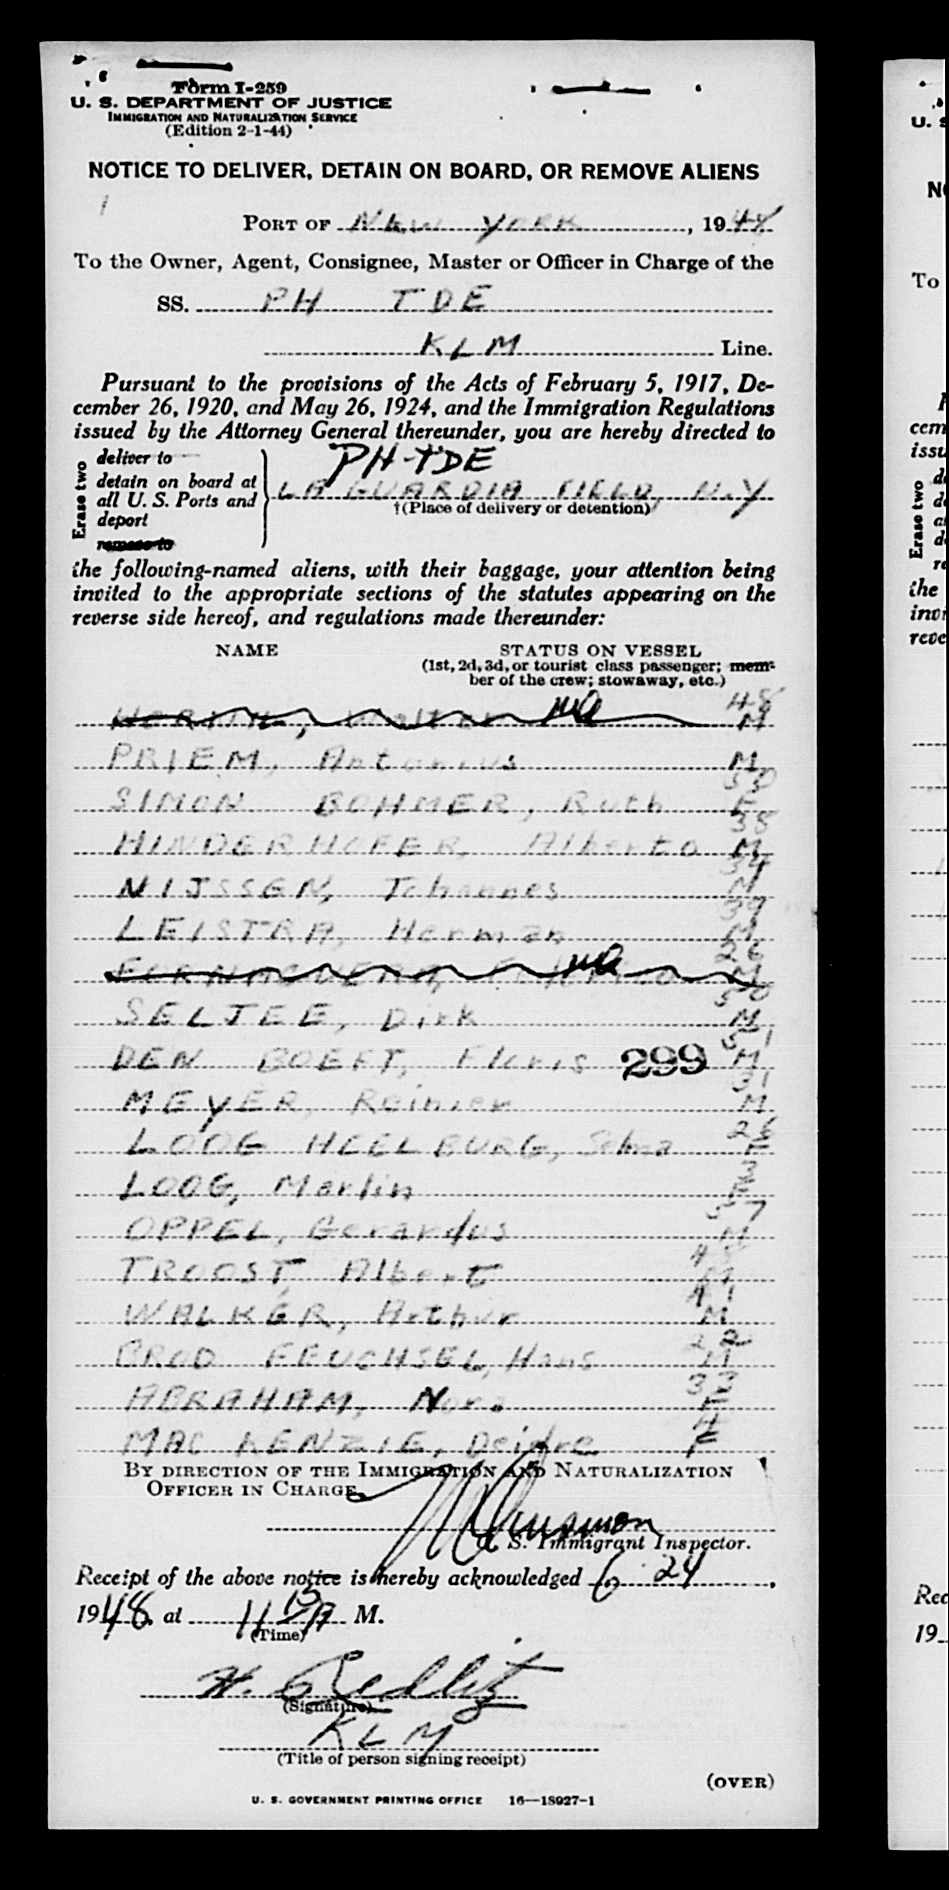 Form I-259
U. S. DEPARTMENT OF JUSTICE
IMMIGRATION AND NATURALIZATION SERVICE
(Edition 2-1-44)
NOTICE TO DELIVER, DETAIN ON BOARD, OR REMOVE ALIENS
PORT OF New York, 1948
To the Owner, Agent, Consignee, Master or Officer in Charge of the
SS. PH TDE
KLM Line.
Pursuant to the provisions of the Acts of February 5, 1917, De-
cember 26, 1920, and May 26, 1924, and the Immigration Regulations
issued by the Attorney General thereunder, you are hereby directed to
Erase two
deliver to
detain on board at
all U. S. Ports and
deport
remove to
PH-TDE
LA GUARDIA FIELD, N.Y
†(Place of delivery or detention)
the following-named aliens, with their baggage, your attention being
invited to the appropriate sections of the statutes appearing on the
reverse side hereof, and regulations made thereunder:
NAME STATUS ON VESSEL
(1st, 2d, 3d, or tourist class passenger; mem-
ber of the crew; stowaway, etc.)
Walter 48 M
PRIEM, Antonius M
SIMON BOHMER, Ruth 50 F
HINDERHOFER, Alberto 38 M
NIJSSEN, Johannes 34 M
LEISTRA, Herman 39 M
26 M
SELJEE, Dirk 50 M
DEN BOEFT, Floris 299 51 M
MEYER, Reinier 31 M
LOOG HEELBURG, Selma 26 F
LOOG, Marlin 3 F
OPPEL, Gerardus 57 M
TROOST, Albert 45 M
WALKER, Arthur 41 M
BROD FEUCHSEL, Hans 22 M
ABRAHAM, Nora 33 F
MAC KENZIE, Deidre 4 F
BY DIRECTION OF THE IMMIGRATION AND NATURALIZATION
OFFICER IN CHARGE,
U. S. Immigrant Inspector.
Receipt of the above notice is hereby acknowledged 6 24,
1948 at 11 15 A M.
(Time)
H. Redlitz
(Signature)
KLM
(Title of person signing receipt)
(OVER)
U. S. GOVERNMENT PRINTING OFFICE 16—18927-1